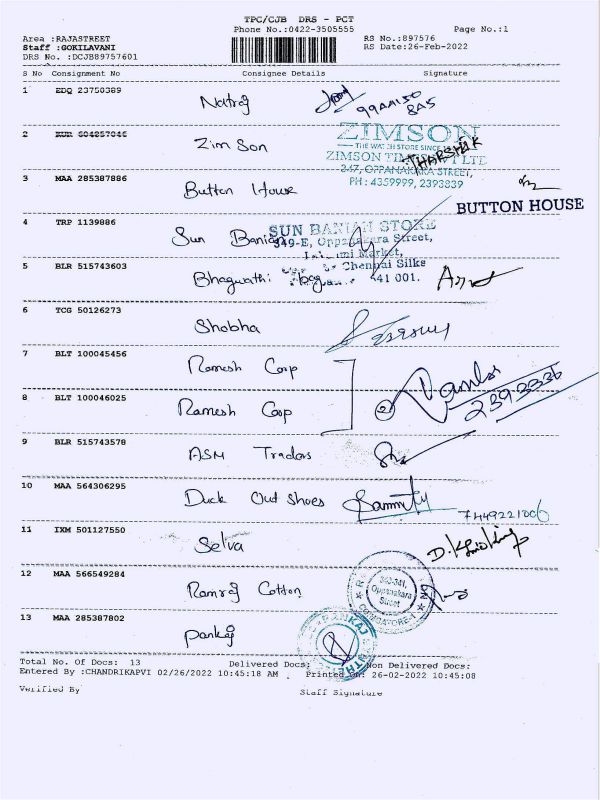 TPC/CJB DRS - PCT
Phone No.:0422-3505555
Page No.:1
Area :RAJASTREET
RS No.:897576
Staff :GOKILAVANI
RS Date:26-Feb-2022
DRS No. :DCJB89757601
S No Consignment No Consignee Details Signature
1 EDQ 23750389
Natraj
99AA150
8A5
2
Zim Son
ZIMSON
THE WATCH STORE SINCE
ZIMSON TIMES PVT LTD
THARSHIK
347, OPPANAKARA STREET,
PH : 4359999, 2393839
3 MAA 285387886
Button House
BUTTON HOUSE
4 TRP 1139886
Sun Banian
SUN BANIAN STORE
349-E, Oppanakara Street,
Market,
Chennai Silks
41 001.
5 BLR 515743603
Bhagwathi Bag
6 TCG 50126273
Shobha
7 BLT 100045456
Ramesh Corp
8 BLT 100046025
Ramesh Corp
2
2393336
9 BLR 515743578
ASM Traders
10 MAA 564306295
Duck Out Shoes
7449221006
11 IXM 501127550
Selva
12 MAA 566549284
Ramraj Cotton
340-341,
Oppanakara
Street
COIMBATORE-1
13 MAA 285387802
Pankaj
PANKAJ
Total No. Of Docs: 13 Delivered Docs: Non Delivered Docs:
Entered By :CHANDRIKAPVI 02/26/2022 10:45:18 AM Printed On: 26-02-2022 10:45:08
Verified By Staff Signature